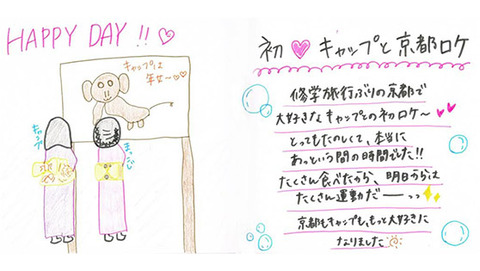 HAPPY DAY!!♡
キャップは
年女〜♡♡
キャップ
まっつん
初♥キャップと京都ロケ
修学旅行ぶりの京都で
大好きなキャップとの初ロケ〜♥♥
とってもたのしくて、本当に
あっという間の時間でした!!
たくさん食べたから、明日からは
たくさん運動だーーっっ
京都もキャップも、もっと大好きに
なりました